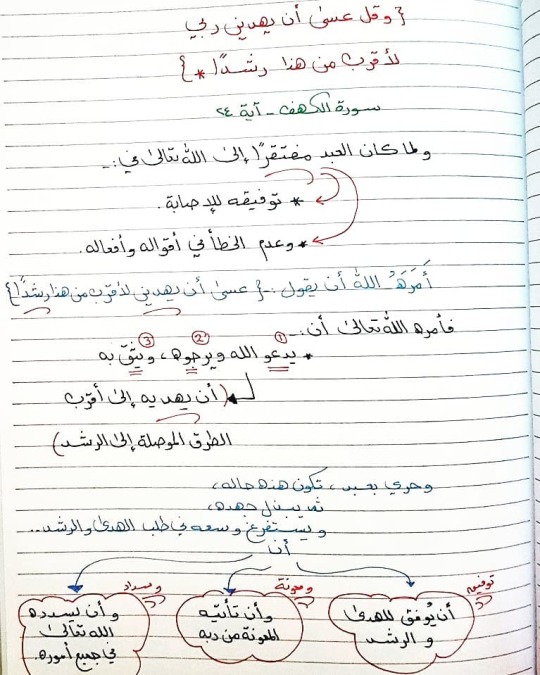 { وقل عسىٰ أن يهديني ربي
لأقرب من هذا رشدًا * }
سورة الكهف - آية ٢٤
ولما كان العبد مفتقرًا إلىٰ الله تعالىٰ في :-
* توفيقه للإصابة.
* وعدم الخطأ في أقواله وأفعاله.
أَمَرَهُ الله أن يقول :- { عسىٰ أن يهديني لأقرب من هذا رشدًا }
فأمره الله تعالىٰ أن :-
① ② ③
* يدعو الله ويرجوه، ويثق به
( أن يهديه إلىٰ أقرب
الطرق الموصلة إلىٰ الرشد )
وحري بعبد، تكون هذه حاله،
ثم يبذل جهده،
ويستفرغ وسعه في طلب الهدىٰ والرشد..
أن
توفيق
أن يُوفق للهدىٰ
و الرشد
ومعونة
وأن تأتيه
المعونة من ربه
وسداد
وأن يسدده
الله تعالىٰ
في جميع أموره.